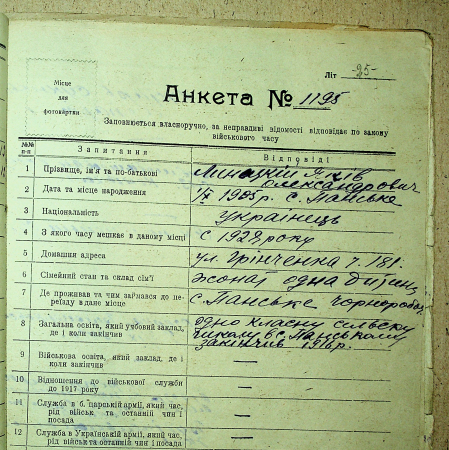 Літ -25-
Місце
для
фотокартки
Анкета № 1195
Заповнюється власноручно, за неправдиві відомості відповідає по закону
військового часу
№№
п-п
Запитання
Відповіді
1 Прізвище, ім'я та по-батькові
Яків
Олександрович
2 Дата та місце народження
1/X 1905р. с. Панське
3 Національність
Українець
4 З якого часу мешкає в даному місці
с 1929 року
5 Домашня адреса
ул. Грінченка
6 Сімейний стан та склад сім'ї
жонат одна
7 Де проживав та чим займався до пе-
реїзду в дане місце
с. Панське чорнороб
8 Загальна освіта, який учбовий заклад,
де і коли закінчив
одно класну сільську
в с. Панському
закінчив 1916 р.
9 Військова освіта, який заклад, де і
коли закінчив
—
10 Відношення до військової служби
до 1917 року
—
11 Служба в б. царській армії, який час,
рід військ та останній чин і
посада
—
12 Служба в Українській армії, який час,
рід військ та останній чин і посада
—